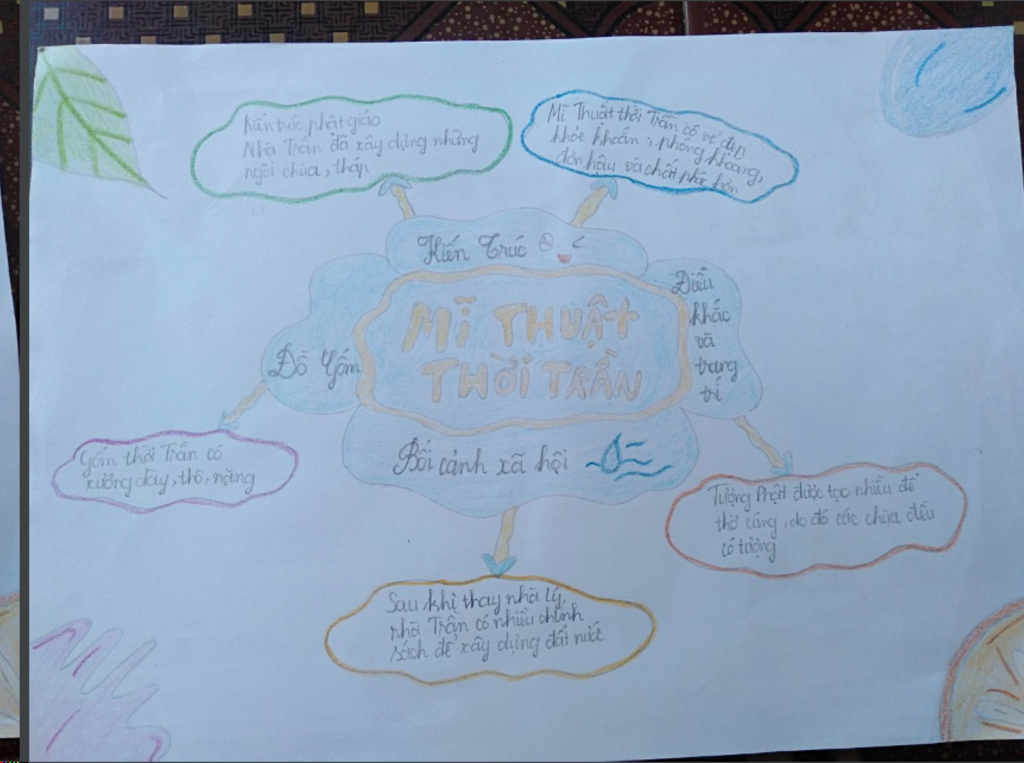 Kiến trúc phật giáo
Nhà Trần đã xây dựng những
ngôi chùa, tháp
Mĩ Thuật thời Trần có vẻ đẹp
khỏe khoắn, phóng khoáng,
đôn hậu và chất phác hơn
Kiến Trúc
Điêu
khắc
và
trang
trí
MĨ THUẬT
THỜI TRẦN
Đồ Gốm
Bối cảnh xã hội
Gốm thời Trần có
xương dày, thô, nặng
Tượng Phật được tạo nhiều để
thờ cúng, do đó các chùa đều
có tượng
Sau khi thay nhà Lý,
nhà Trần có nhiều chính
sách để xây dựng đất nước